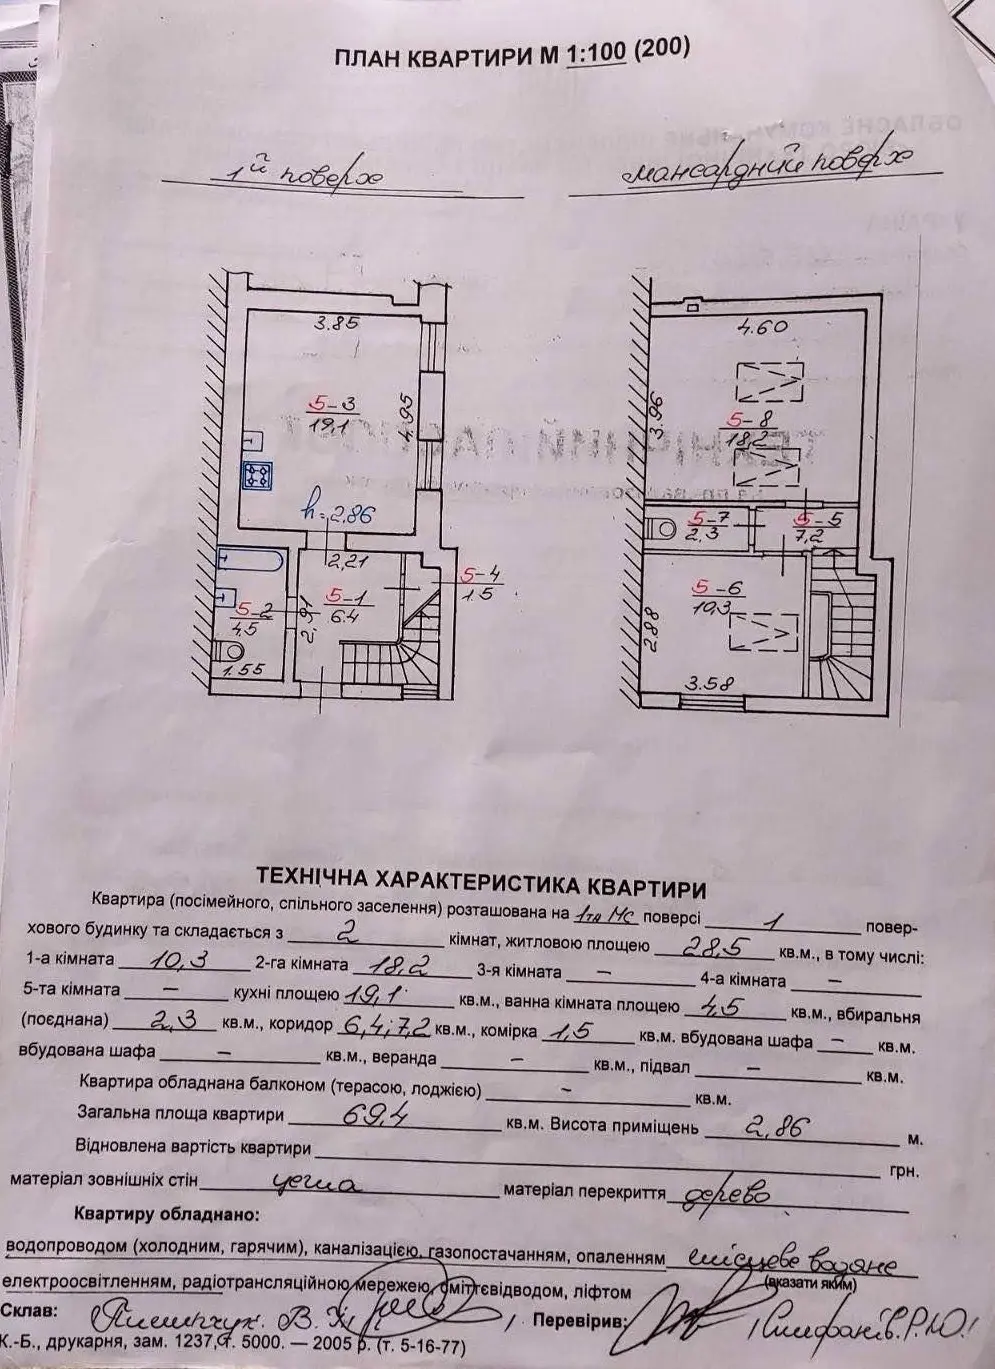 ПЛАН КВАРТИРИ М 1:100 (200)
1й поверх
мансардний поверх
3.85
5-3
19,1
4.95
h=2.86
2,21
5-4
1.5
5-1
6.4
2.91
5-2
4,5
1.55
4.60
3.96
5-8
18,2
5-7
2,3
5-5
7,2
5-6
10,3
2.88
3.58
ТЕХНІЧНА ХАРАКТЕРИСТИКА КВАРТИРИ
Квартира (посімейного, спільного заселення) розташована на 1та мс поверсі 1 повер-
хового будинку та складається з 2 кімнат, житловою площею 28,5 кв.м., в тому числі:
1-а кімната 10,3 2-га кімната 18,2 3-я кімната – 4-а кімната –
5-та кімната – кухні площею 19,1 кв.м., ванна кімната площею 4,5 кв.м., вбиральня
(поєднана) 2,3 кв.м., коридор 6,4; 7,2 кв.м., комірка 1,5 кв.м. вбудована шафа – кв.м.
вбудована шафа – кв.м., веранда – кв.м., підвал – кв.м.
Квартира обладнана балконом (терасою, лоджією) – кв.м.
Загальна площа квартири 69,4 кв.м. Висота приміщень 2,86 м.
Відновлена вартість квартири грн.
матеріал зовнішніх стін цегла матеріал перекриття дерево
Квартиру обладнано:
водопроводом (холодним, гарячим), каналізацією, газопостачанням, опаленням місцеве водяне
(вказати яким)
електроосвітленням, радіотрансляційною мережею, сміттєвідводом, ліфтом
Склав: В. Перевірив: Р.Ю.
К.-Б., друкарня, зам. 1237, т. 5000. — 2005 р. (т. 5-16-77)